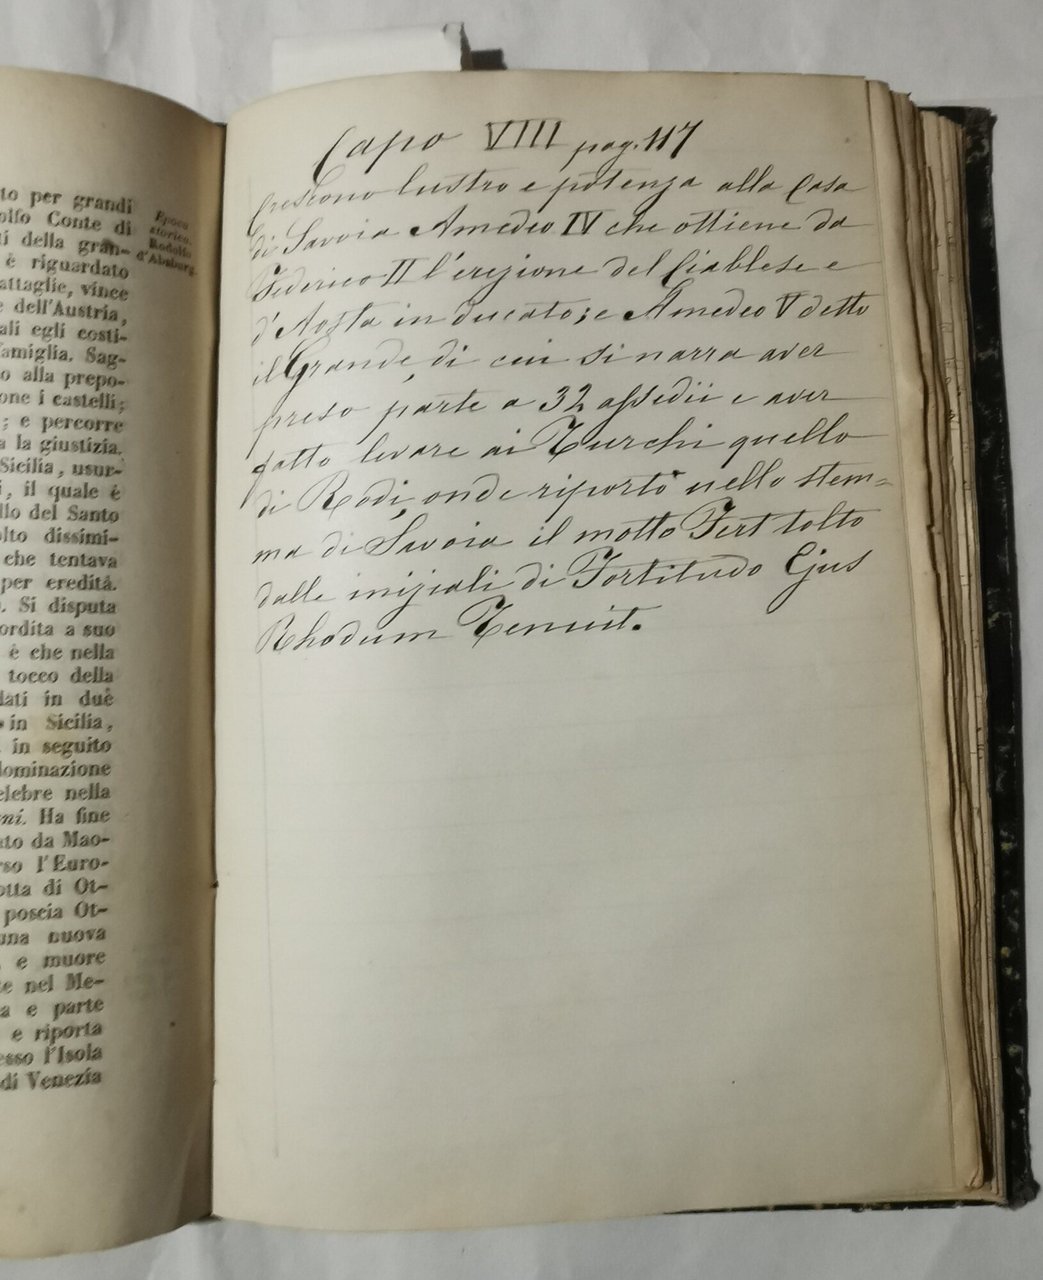 to per grandi
olfo Conte di
ti della gran-
è riguardato
attaglie, vince
e dell'Austria,
ali egli costi-
famiglia. Sag-
o alla prepo-
one i castelli;
; e percorre
a la giustizia.
Sicilia, usur-
i, il quale è
llo del Santo
olto dissimi-
che tentava
per eredità.
. Si disputa
ordita a suo
è che nella
tocco della
lati in due
in Sicilia,
in seguito
dominazione
elebre nella
ni. Ha fine
ato da Mao-
rso l'Euro-
otta di Ot-
poscia Ot-
una nuova
e muore
te nel Me-
a e parte
e riporta
esso l'Isola
di Venezia
Epoca
storico.
Rodolfo
d'Absburg.
Capo VIII pag. 117
Crescono lustro e potenza alla Casa
di Savoia Amedeo IV che ottiene da
Federico II l'erezione del Ciablese e
d'Aosta in ducato; e Amedeo V detto
il Grande, di cui si narra aver
preso parte a 32 assedii e aver
fatto levare ai Turchi quello
di Rodi, onde riportò nello stem=
ma di Savoia il motto Fert tolto
dalle iniziali di Fortitudo Ejus
Rhodum Tenuit.